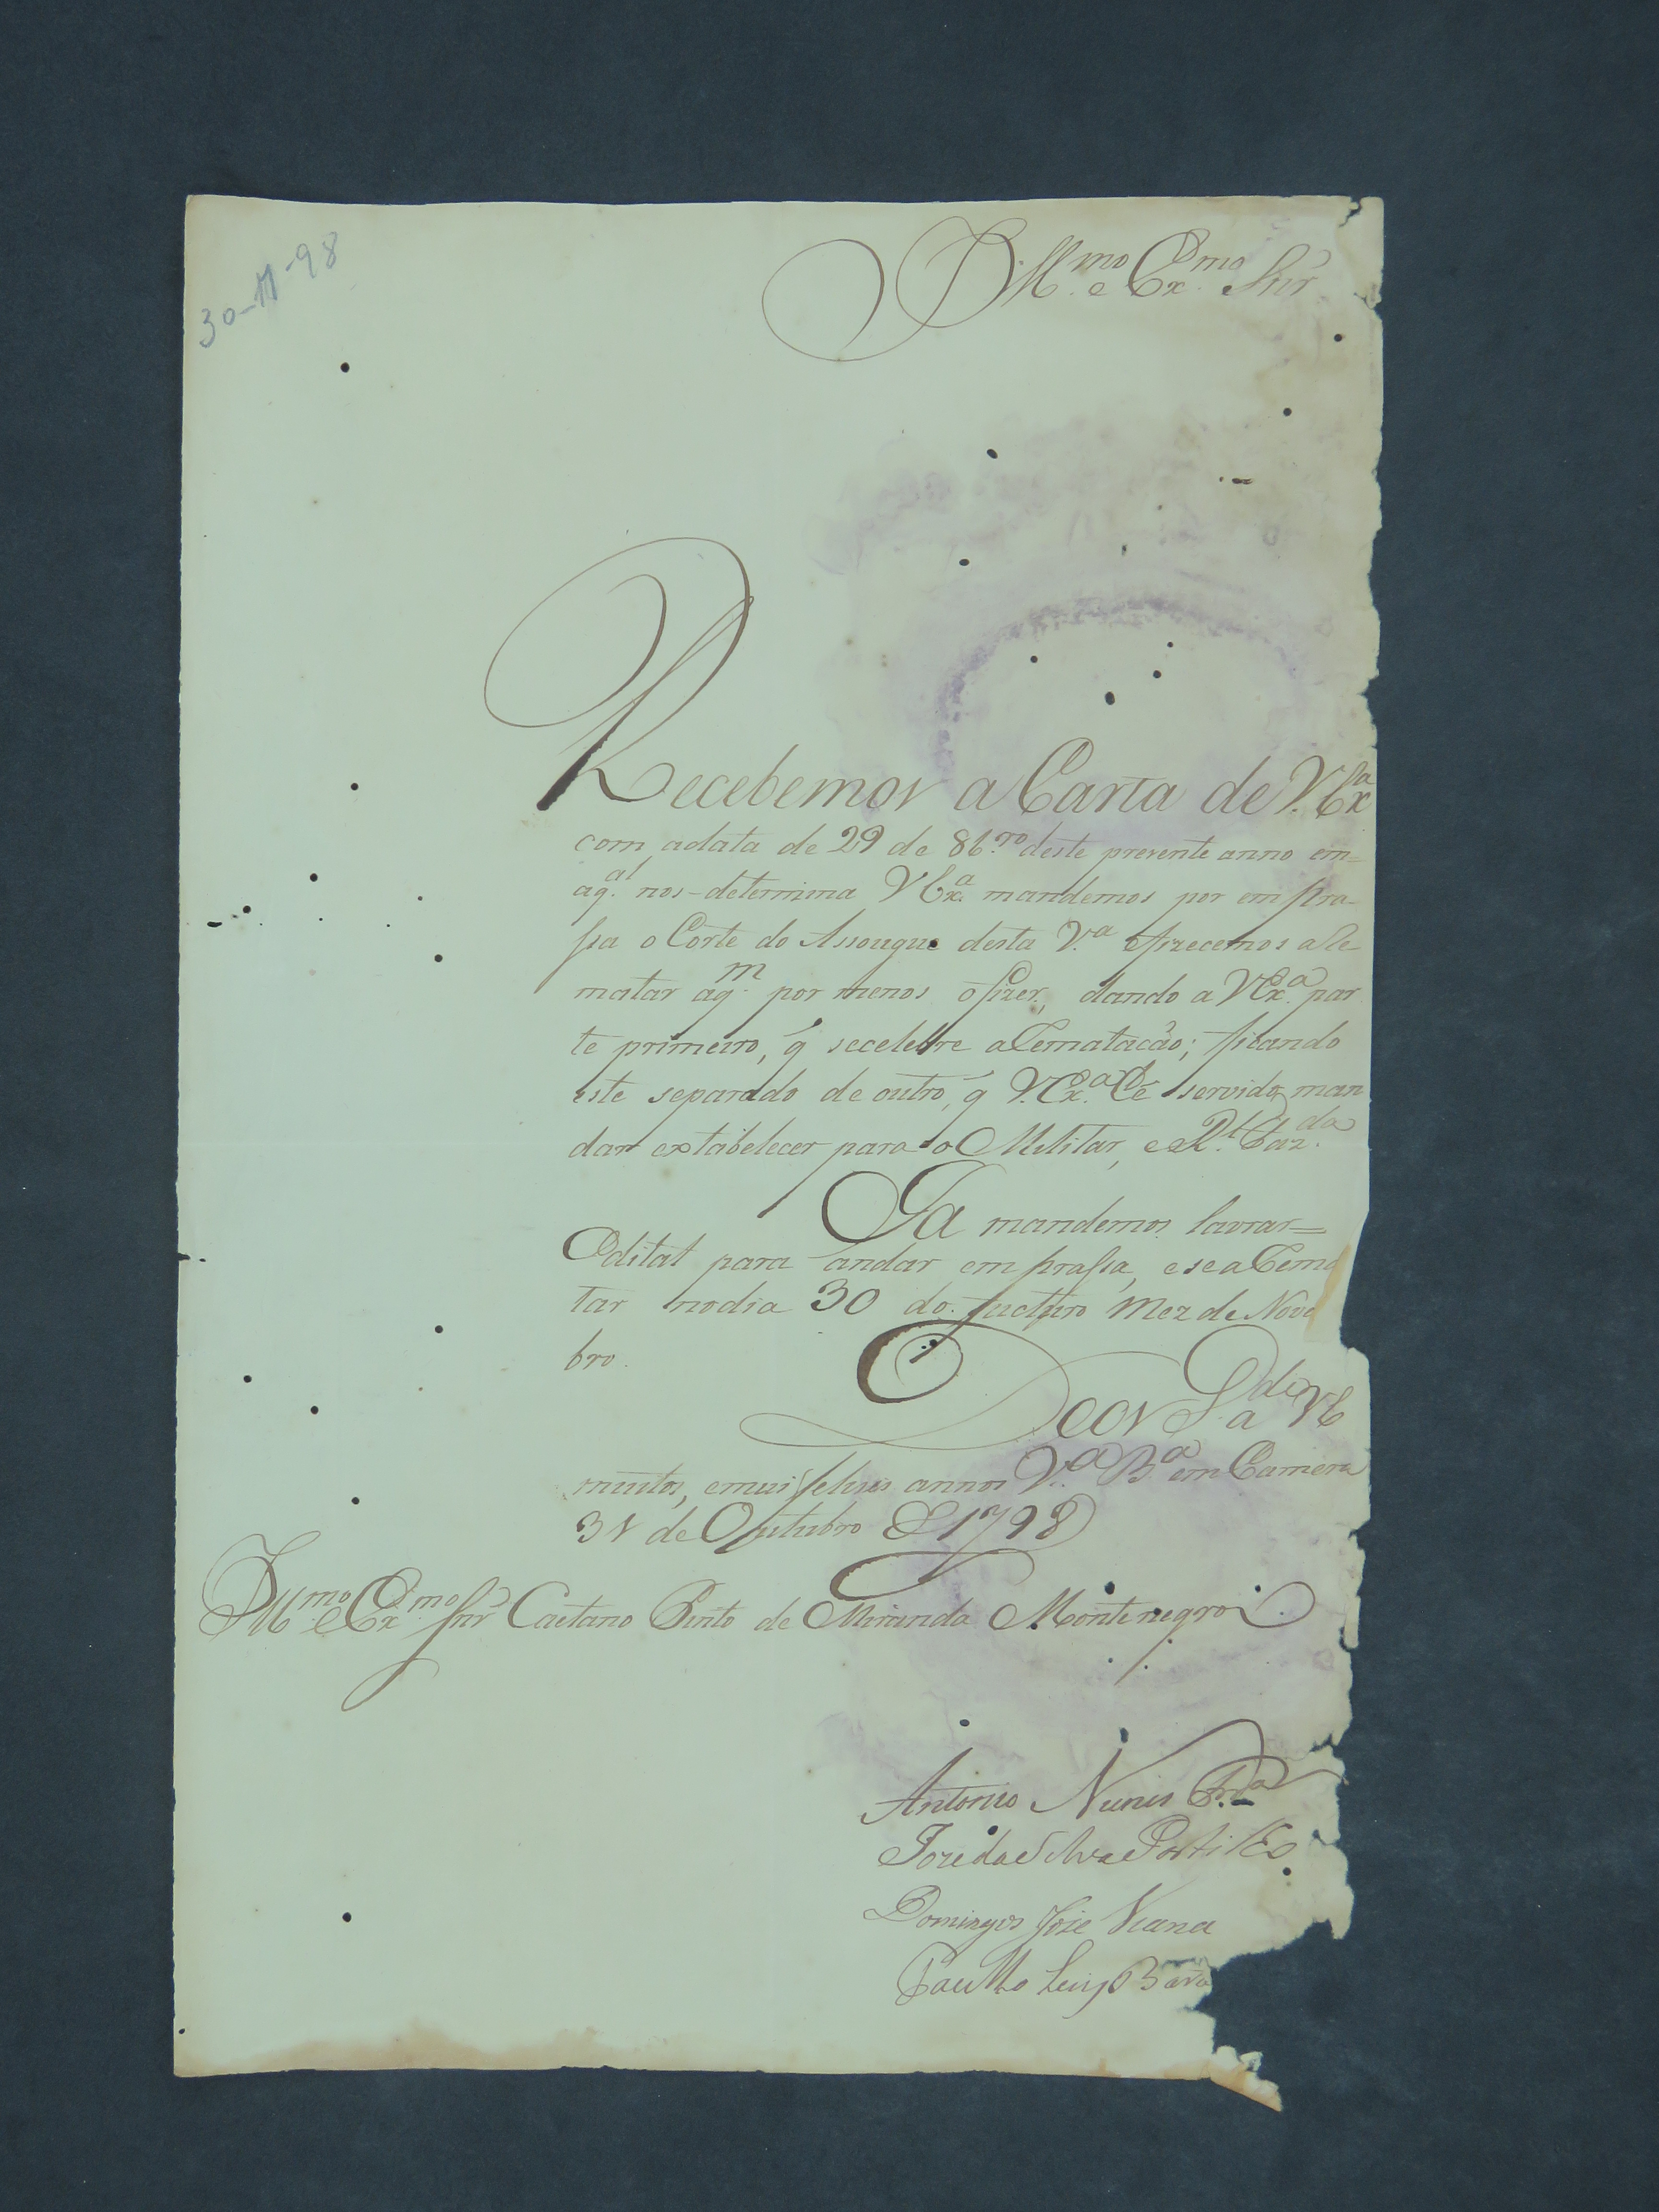 30-11-98
Ill.mo e Ex.mo Snr
Recebemos a Carta de V. Ex.a
com adata de 29 de 8br.ro deste prezente anno em=
aq.al nos-determina V Ex.a mandemos por em Pra-
ssa o Corte do Assougue desta V.a e fizecemos aRe
matar aq.m por menos o fizer, dando a V Ex.a par
te primeiro, q̃ secelebre aRematacão; ficando
este separado de outro, q̃ V. Ex.a he servido man
dar extabelecer para o Militar, e R.l Faz.da
Ja mandemos lavrar=
Edital para andar em prassa, e se aRema
tar nodia 30 do fucturo Mez de Nove
bro.
Deos G.de a V E
muitos, emui felises annos V.a B.a em Camera
31 de Outubro de 1798
Ill.mo e Ex.mo Snr Caetano Pinto de Miranda Montenegro.
Antonio Nunes
Joze da Silva Portilho
Domingos Joze Viana
Paullo Luis